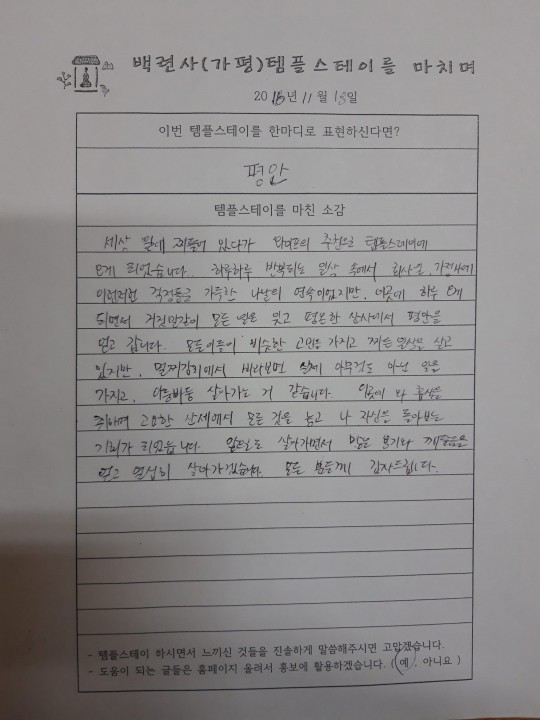 백련사(가평)템플스테이를 마치며
2018년 11월 18일
이번 템플스테이를 한마디로 표현하신다면?
평안
템플스테이를 마친 소감
세상 일에 찌들어 있다가 와이프의 추천으로 템플스테이에
오게 되었습니다. 하루하루 반복되는 일상 속에서 회사일, 가정사에
이런저런 걱정들로 가득한 나날의 연속이었지만, 이곳에 하루 오게
되면서 거짓말같이 모든 일을 잊고 평온한 산사에서 평안을
얻고 갑니다. 모든이들이 비슷한 고민을 가지고 찌든 일상을 살고
있지만, 멀찌감치에서 바라보면 실제 아무것도 아닌 일을
가지고, 아둥바둥 살아가는 거 같습니다. 이곳에 와 휴식을
취하며 고요한 산세에서 모든 것을 놓고 나 자신을 돌아보는
기회가 되었습니다. 앞으로도 살아가면서 많은 용기와 깨달음을
얻고 열심히 살아가겠습니다. 모든 분들께 감사드립니다.
- 템플스테이 하시면서 느끼신 것들을 진솔하게 말씀해주시면 고맙겠습니다.
- 도움이 되는 글들은 홈페이지 올려서 홍보에 활용하겠습니다. ( 예, 아니요 )